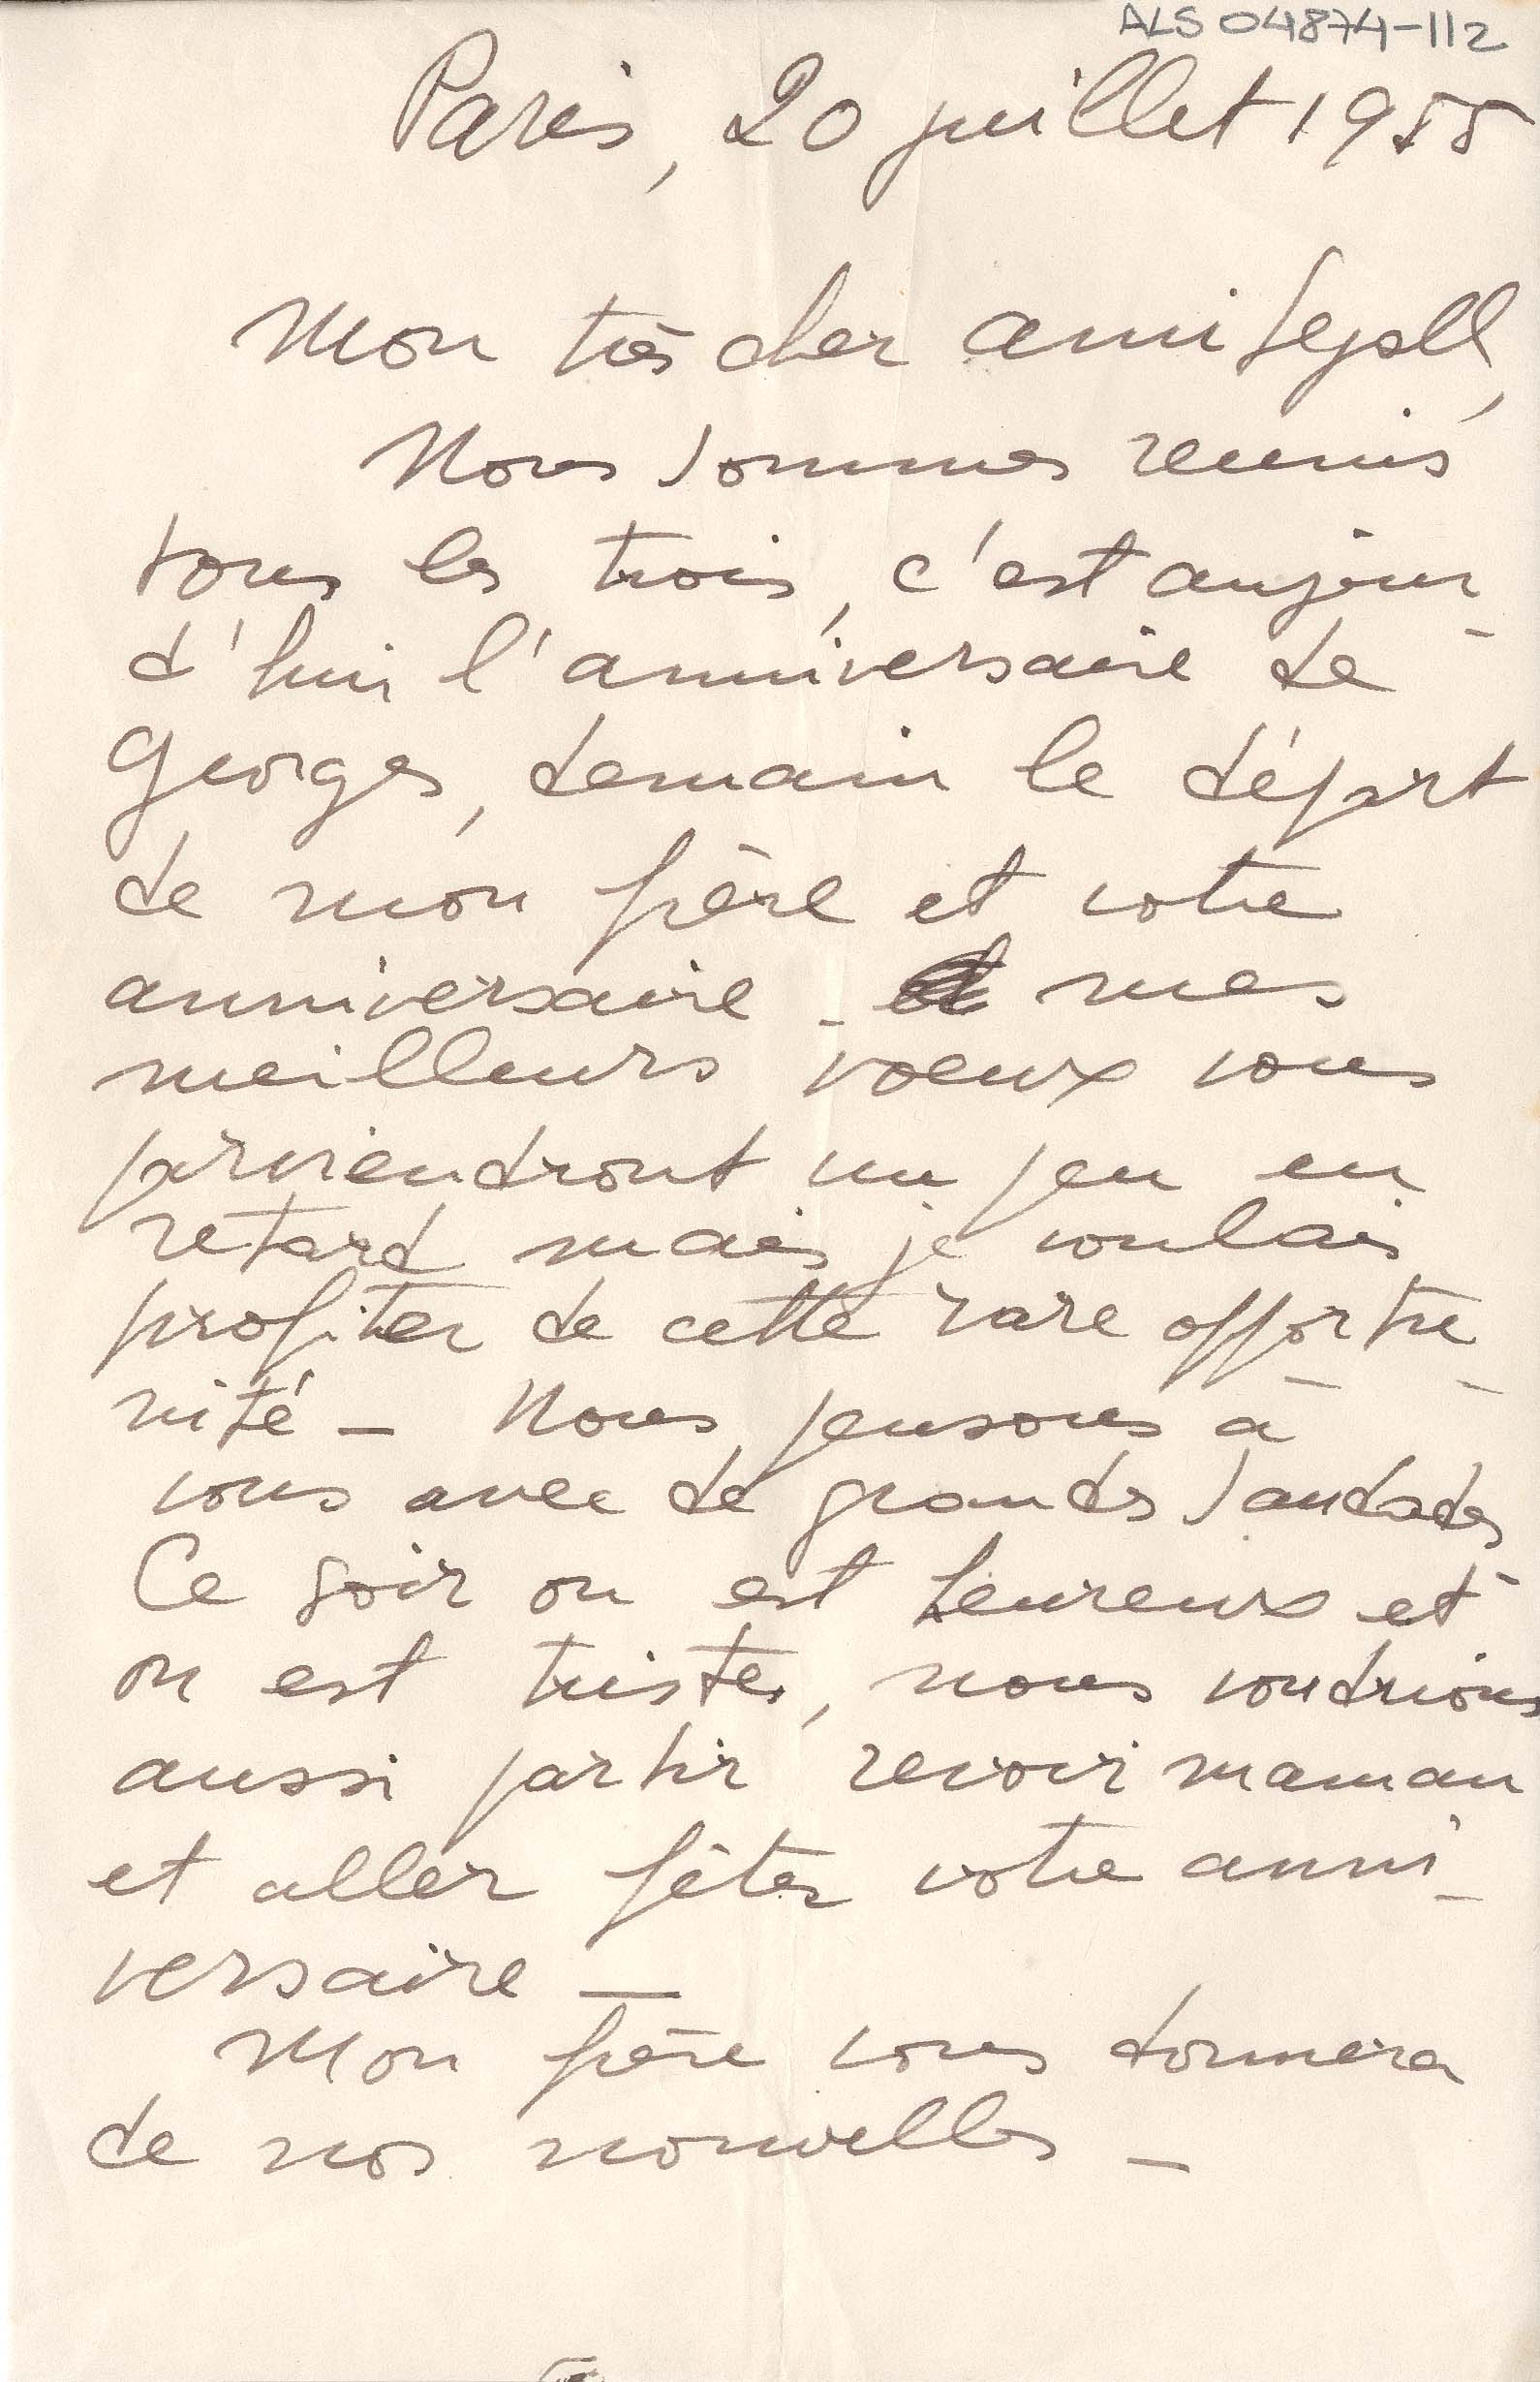 ALS 04874-112
Paris, 20 juillet 1955
Mon très cher ami Segall,
Nous sommes reunis
tous les trois, c'est aujour-
d'hui l'anniversaire de
Georges, demain le départ
de mon père et votre
anniversaire - mes
meilleurs voeux vous
parviendront un peu en
retard mais je voulais
profiter de cette rare opportu-
nité - Nous pensons à
vous avec de grandes saudades
Ce soir on est heureux et
on est tristes, nous voudrions
aussi partir revoir maman
et aller fêter votre anni-
versaire —
Mon père vous donnera
de nos nouvelles -